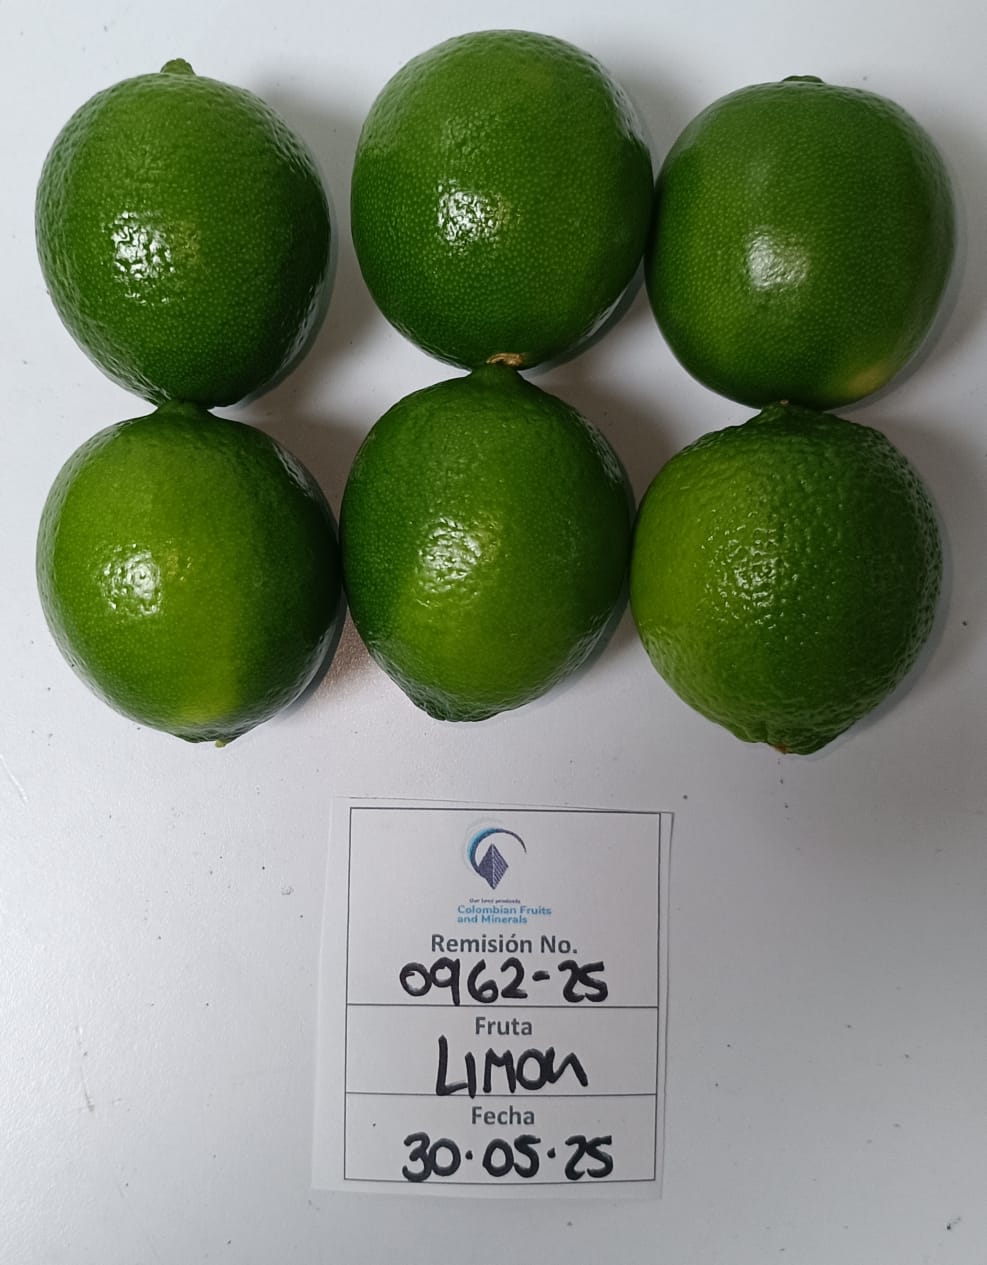 Our best products
Colombian Fruits
and Minerals
Remisión No.
0962-25
Fruta
LIMON
Fecha
30·05·25